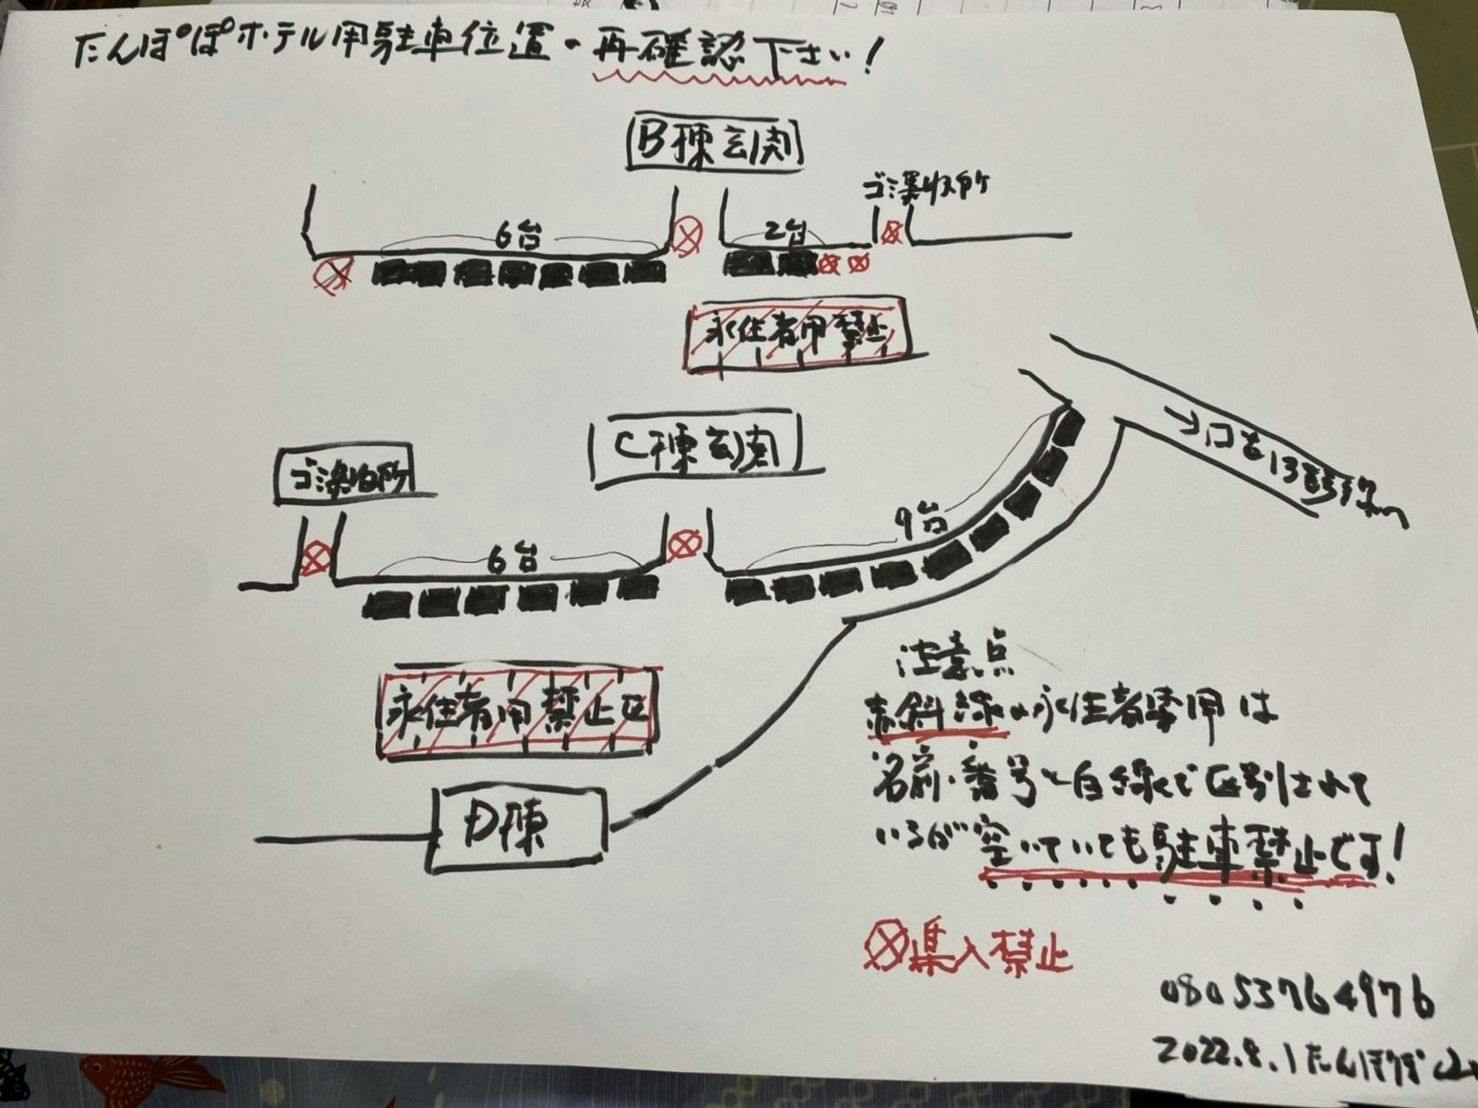 たんぽぽホテル用駐車位置・再確認下さい!
B棟玄関
ゴミ集収所
6台
2台
永住者用禁止
C棟玄関
ゴミ集
6台
9台
永住者用禁止区
D棟
注意点
赤斜線の永住者専用は
名前・番号と白線で区別されて
いるが空いていても駐車禁止です!
入禁止
080 5376 4976
2022.8.1 たんぽぽ